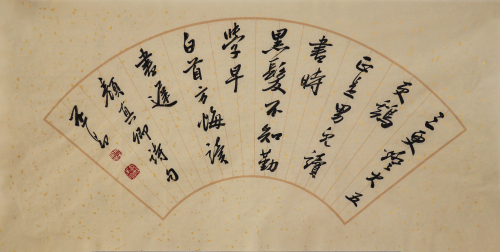 三更灯火五
更鸡
正是男儿读
書時
黑髮不知勤
學早
白首方悔读
書遲
顏真卿诗句